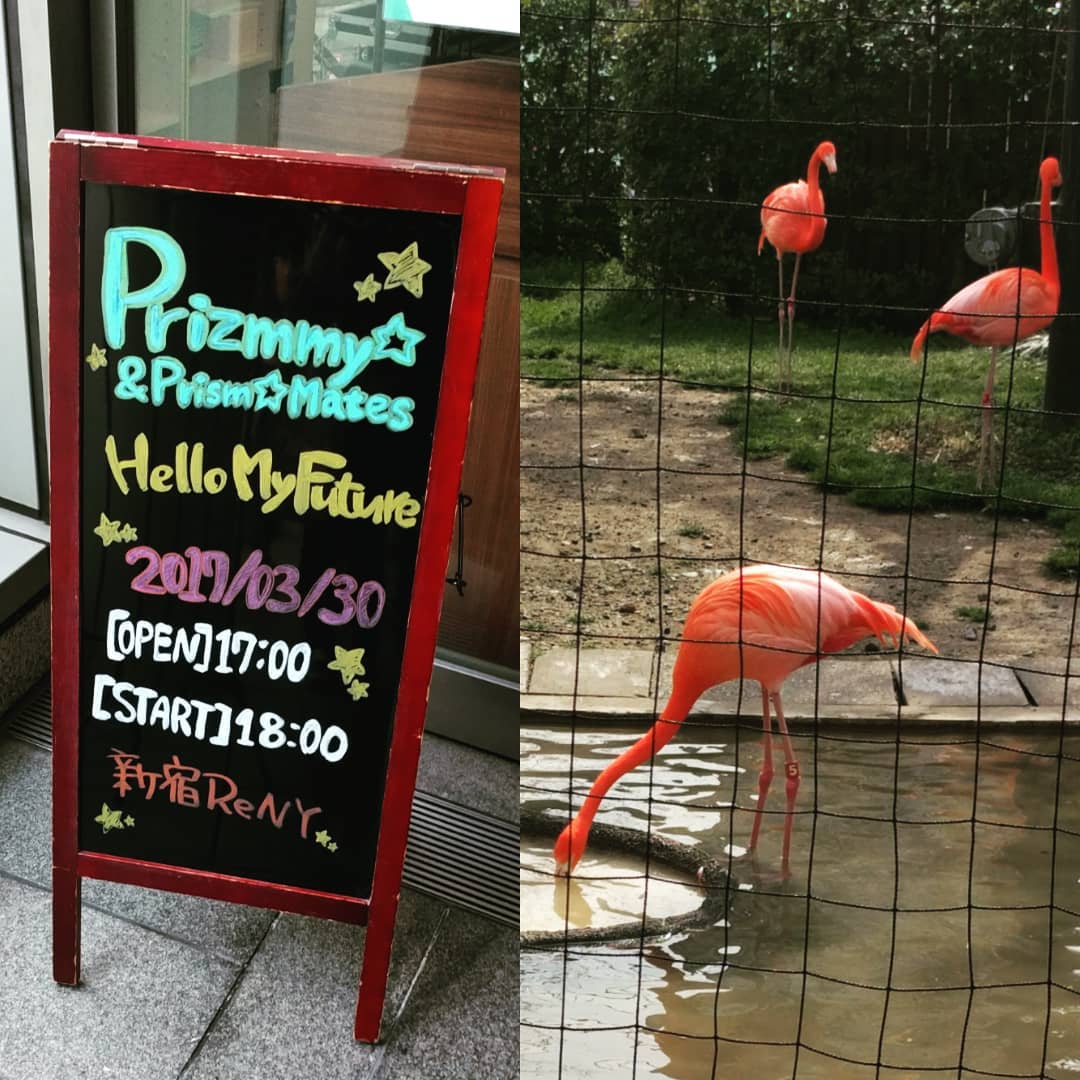 Prizmmy☆
&Prism☆Mates
Hello My Future
2017/03/30
[OPEN]17:00
[START]18:00
新宿ReNY
5